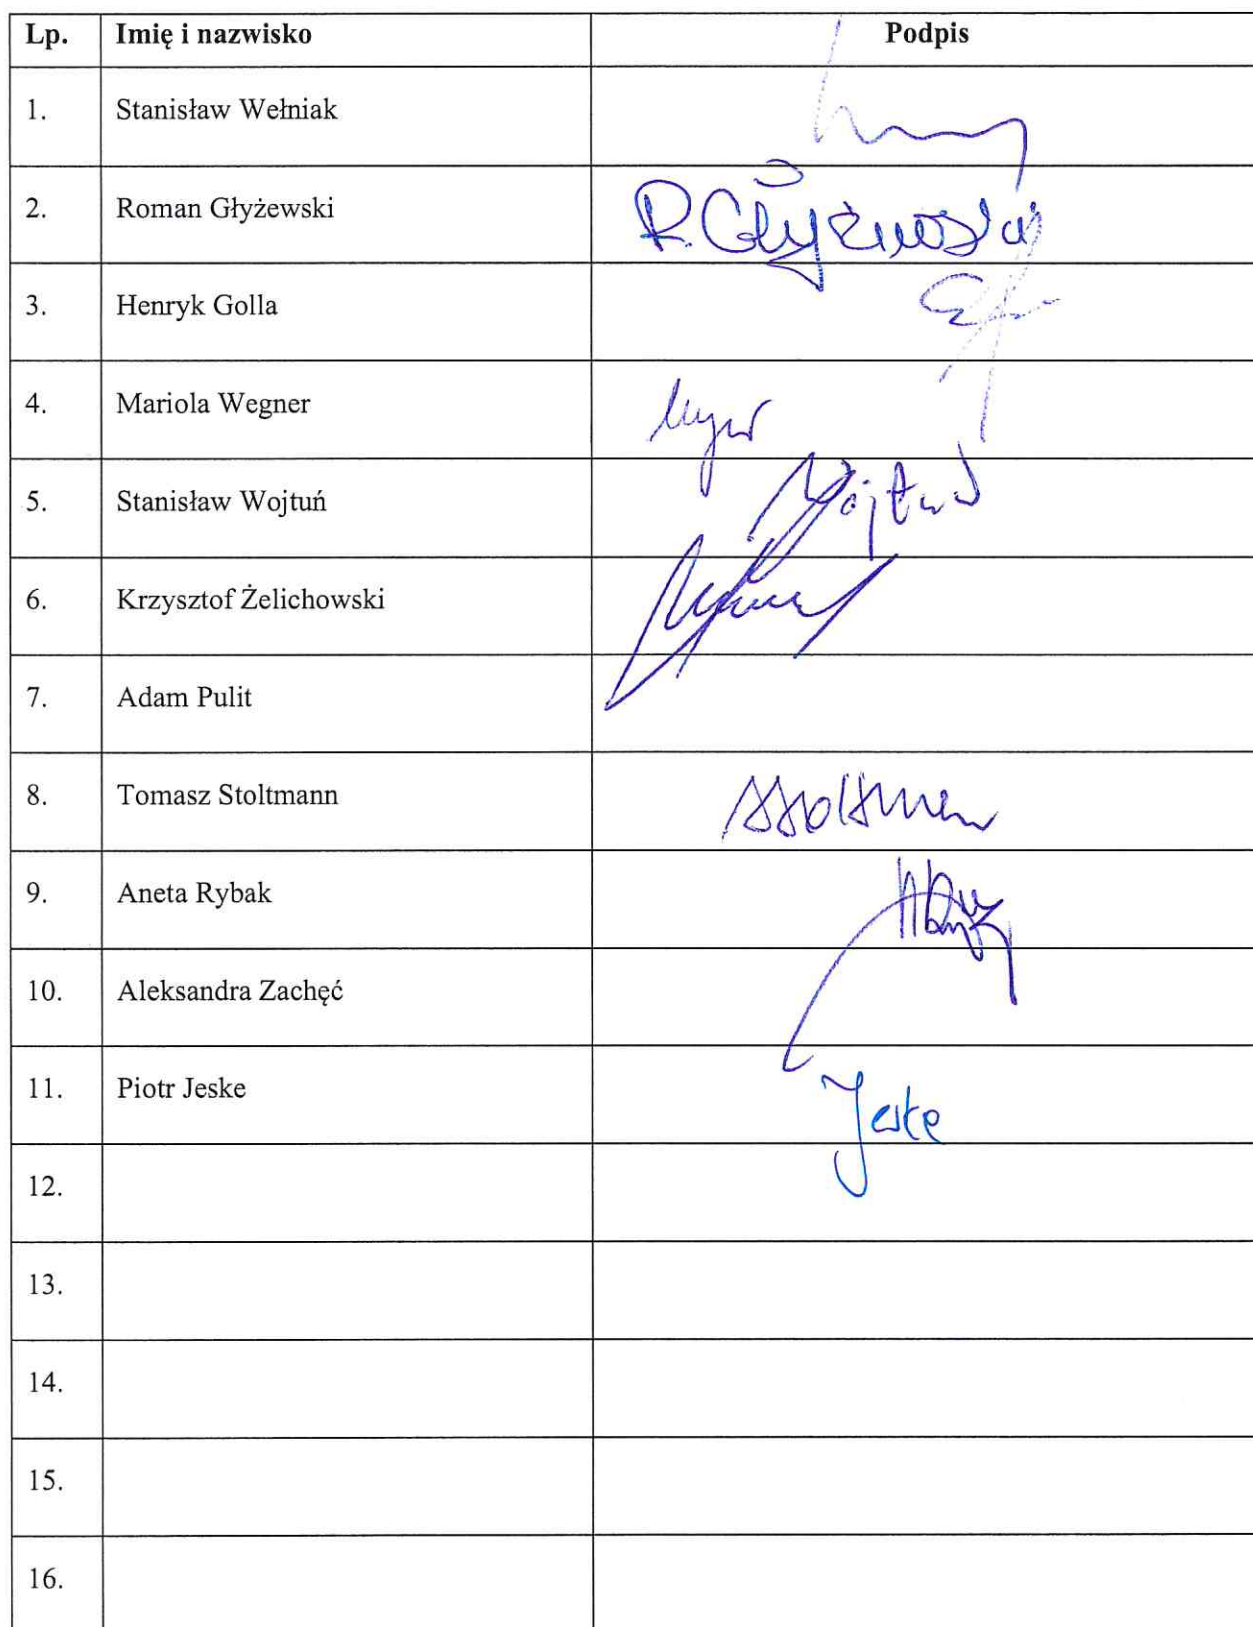 Lp. Imię i nazwisko Podpis
1. Stanisław Wełniak
2. Roman Głyżewski R. Głyżewski
3. Henryk Golla
4. Mariola Wegner
5. Stanisław Wojtuń Wojtuń
6. Krzysztof Żelichowski
7. Adam Pulit
8. Tomasz Stoltmann
9. Aneta Rybak
10. Aleksandra Zachęć
11. Piotr Jeske Jeske
12.
13.
14.
15.
16.